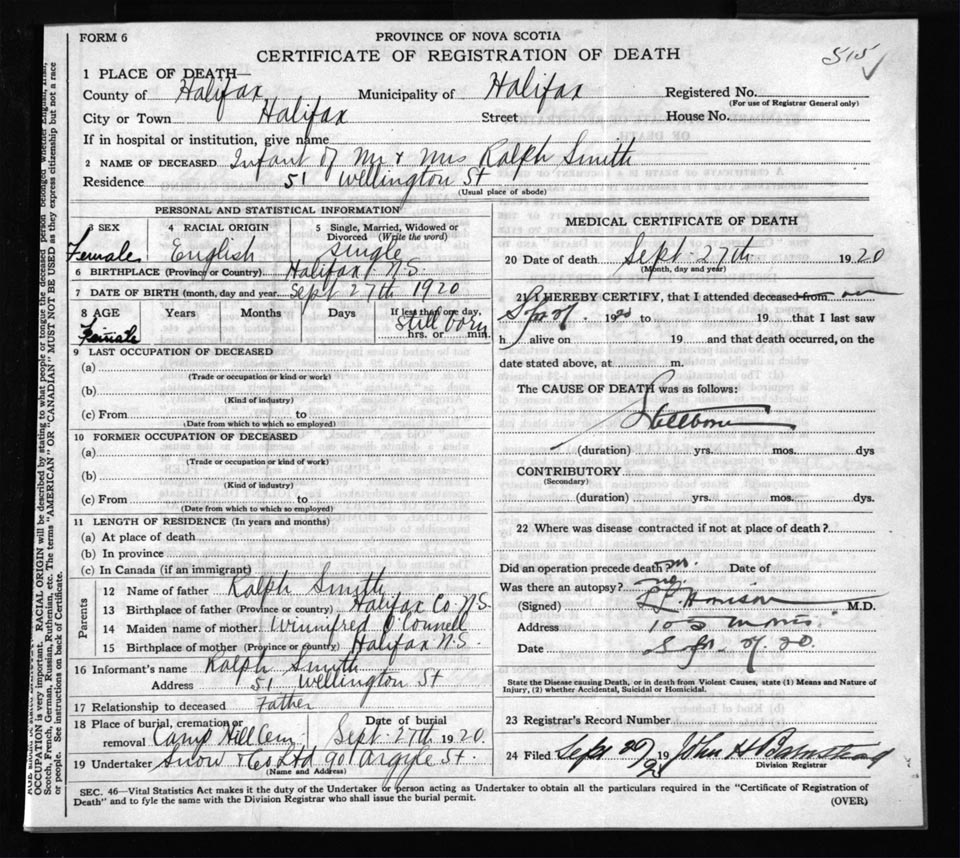 FORM 6
PROVINCE OF NOVA SCOTIA
CERTIFICATE OF REGISTRATION OF DEATH
515
1 PLACE OF DEATH—
County of Halifax Municipality of Halifax Registered No.
(For use of Registrar General only)
City or Town Halifax Street House No.
If in hospital or institution, give name
2 NAME OF DECEASED Infant of Mr & Mrs Ralph Smith
Residence 51 Wellington St
(Usual place of abode)
PERSONAL AND STATISTICAL INFORMATION
3 SEX 4 RACIAL ORIGIN 5 Single, Married, Widowed or Divorced (Write the word)
Female English Single
6 BIRTHPLACE (Province or Country) Halifax N.S.
7 DATE OF BIRTH (month, day and year) Sept 27th 1920
8 AGE Years Months Days If less than one day,
Female Still born
hrs. or min.
9 LAST OCCUPATION OF DECEASED
(a)
(Trade or occupation or kind or work)
(b)
(Kind of industry)
(c) From to
(Date from which to which so employed)
10 FORMER OCCUPATION OF DECEASED
(a)
(Trade or occupation or kind of work)
(b)
(Kind of industry)
(c) From to
(Date from which to which so employed)
11 LENGTH OF RESIDENCE (In years and months)
(a) At place of death
(b) In province
(c) In Canada (if an immigrant)
Parents
12 Name of father Ralph Smith
13 Birthplace of father (Province or country) Halifax Co. N.S.
14 Maiden name of mother Winnifred O'Connell
15 Birthplace of mother (Province or country) Halifax N.S.
16 Informant's name Ralph Smith
Address 51 Wellington St
17 Relationship to deceased Father
18 Place of burial, cremation or removal Camp Hill Cem Date of burial Sept. 27th 1920.
19 Undertaker Snow & Co Ltd 90 Argyle St.
(Name and Address)
MEDICAL CERTIFICATE OF DEATH
20 Date of death Sept. 27th 1920
(Month, day and year)
21 I HEREBY CERTIFY, that I attended deceased from on
Sept 27. 1920 to 19 that I last saw
h alive on 19 and that death occurred, on the
date stated above, at m.
The CAUSE OF DEATH was as follows:
Stillborn
(duration) yrs. mos. dys
CONTRIBUTORY
(Secondary)
(duration) yrs. mos. dys.
22 Where was disease contracted if not at place of death?
Did an operation precede death? no. Date of
Was there an autopsy? no.
(Signed) M.D.
Address Morris
Date Sept. 27. 20.
State the Disease causing Death, or in death from Violent Causes, state (1) Means and Nature of
Injury, (2) whether Accidental, Suicidal or Homicidal.
23 Registrar's Record Number
24 Filed Sept 19 John H Barnstead
Division Registrar
SEC. 46—Vital Statistics Act makes it duty of the Undertaker or person acting as Undertaker to obtain all the particulars required in the "Certificate of Registration of
Death" and to fyle the same with the Division Registrar who shall issue the burial permit.
(OVER)
OCCUPATION is very important. RACIAL ORIGIN will be described by stating to what people or tongue the deceased person belonged whether English, Irish,
Scotch, French, German, Russian, Ruthenian, etc. The terms "AMERICAN" OR "CANADIAN" MUST NOT BE USED as they express citizenship but not a race
or people. See instructions on back of Certificate.